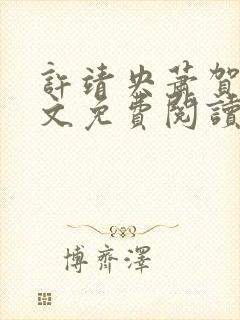 許靖央蕭賀
文免費閱讀
博齊澤